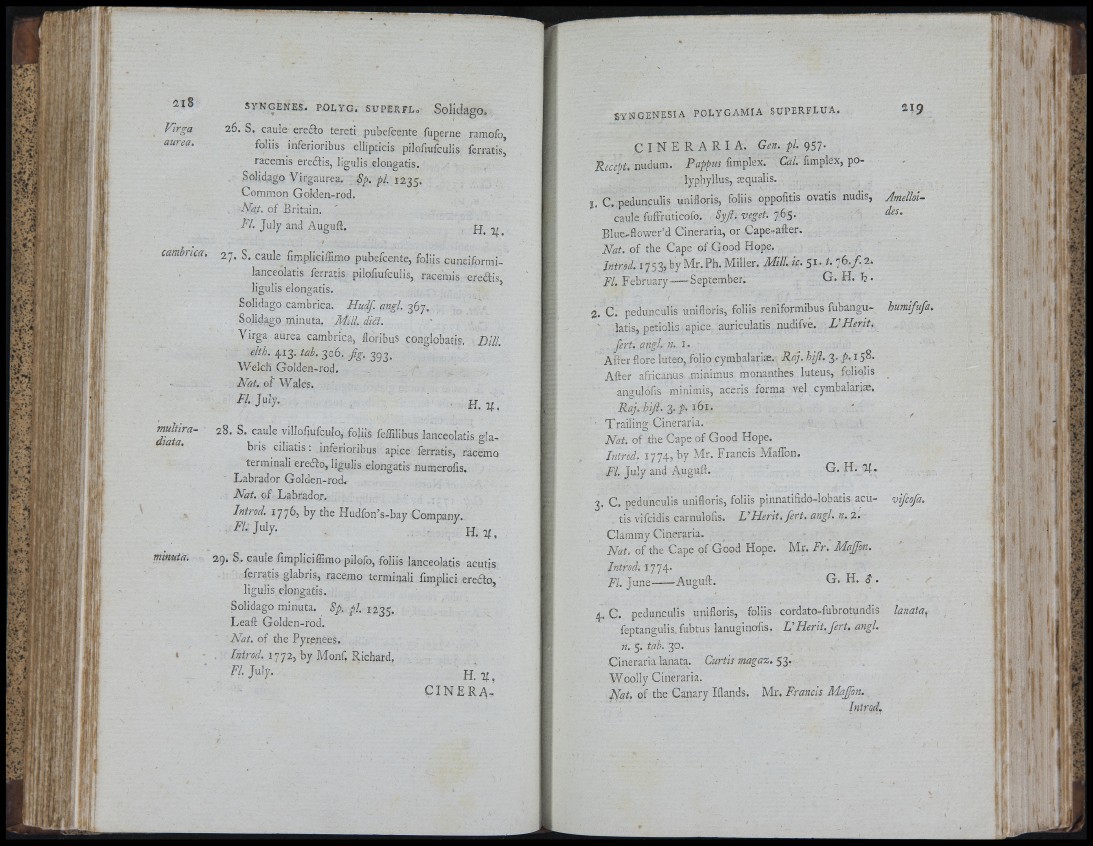 218 SYNGENES. POLYG. SUPERFL. Solidago.
Virga aurea. 26. S. caule erecto tereti pubeſcente ſuperne ramoſo,
foliis inferioribus ellipticis piloſiuſculis ſerratis,
racemis erectis, ligulis elongatis.
Solidago Virgaurea. Sp. pl. 1235.
Common Golden-rod.
Nat. of Britain.
Fl. July and Auguſt. H. ♃.
cambrica. 27. S. caule ſimpliciſſimo pubeſcente, foliis cuneiformi-
lanceolatis ſerratis piloſiuſculis, racemis erectis,
ligulis elongatis.
Solidago cambrica. Hudſ. angl. 367.
Solidago minuta. Mill. dict.
Virga aurea cambrica, floribus conglobatis. Dill.
elth. 413. tab. 306. fig. 393.
Welch Golden-rod.
Nat. of Wales.
Fl. July. H. ♃.
multiradiata. 28. S. caule villoſiuſculo, foliis ſeſſilibus lanceolatis gla-
bris ciliatis: inferioribus apice ſerratis, racemo
terminali erecto, ligulis elongatis numeroſis.
Labrador Golden-rod.
Nat. of Labrador.
Introd. 1776, by the Hudſon's-bay Company.
Fl. July. H. ♃.
minuta. 29. S. caule ſimpliciſſimo piloſo, foliis lanceolatis acutis
ſerratis glabris, racemo terminali ſimplici erecto,
ligulis elongatis.
Solidago minuta. Sp. pl. 1235.
Leaſt Golden-rod.
Nat. of the Pyrenees.
Introd. 1772, by Monſ. Richard.
Fl. July. H. ♃.
CINERA-
SYNGENESIA POLYGAMIA SUPERFLUA. 219
CINERARIA. Gen. pl. 957.
Recept. nudum. Pappus ſimplex. Cal. ſimplex, po-
lyphyllus, æqualis.
1. C. pedunculis unifloris, foliis oppoſitis ovatis nudis, Amelloi-
caule ſuffruticoſo. Syſt. veget. 765. des.
Blue-flower'd Cineraria, or Cape-aſter.
Nat. of the Cape of Good Hope.
Introd. 1753, by Mr. Ph. Miller. Mill. ic. 51. t. 76. f. 2.
Fl. February——September. G. H. ♄.
2. C. pedunculis unifloris, foliis reniformibus ſubangu- humifuſa.
latis, petiolis apice auriculatis nudiſve. L'Herit.
ſert. angl. n. 1.
After flore luteo, folio cymbalariæ. Raj. hiſt. 3. p. 158.
After africanus minimus monanthes luteus, foliolis
anguloſis minimis, aceris forma vel cymbalariæ.
Raj. hiſt. 3. p. 161.
Trailing Cineraria.
Nat. of the Cape of Good Hope.
Introd. 1774, by Mr. Francis Maſſon.
Fl. July and Auguſt. G. H. ♃.
3. C. pedunculis unifloris, foliis pinnatifido-lobatis acu- viſcoſa.
tis viſcidis carnuloſis. L'Herit. ſert. angl. n. 2.
Clammy Cineraria.
Nat. of the Cape of Good Hope. Mr. Fr. Maſſon.
Introd. 1774.
Fl. June——Auguſt. G. H. ♂.
4. C. pedunculis unifloris, foliis cordato-ſubrotundis lanata.
ſeptangulis ſubtus lanuginoſis. L'Herit. ſert. angl.
n. 5. tab. 30.
Cineraria lanata. Curtis magaz. 53.
Woolly Cineraria.
Nat. of the Canary Iſlands. Mr. Francis Maſſon.
Introd.